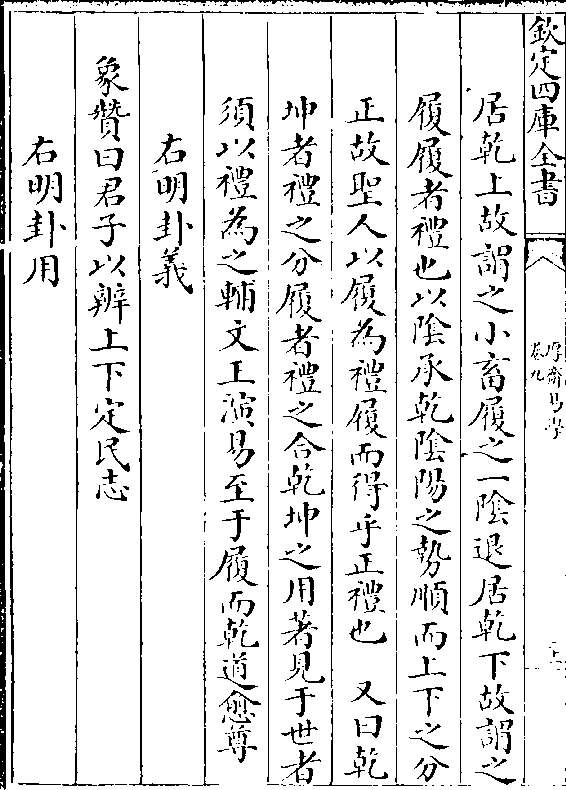 欽定四庫全書
厚齋易學
卷九
居乾上故謂之小畜履之一陰退居乾下故謂之
履履者禮也以陰承乾陰陽之勢順而上下之分
正故聖人以履為禮履而得乎正禮也　又曰乾
坤者禮之分履者禮之合乾坤之用著見于世者
須以禮為之輔文王演易至于履而乾道愈尊
右明卦義
象贊曰君子以辨上下定民志
右明卦用